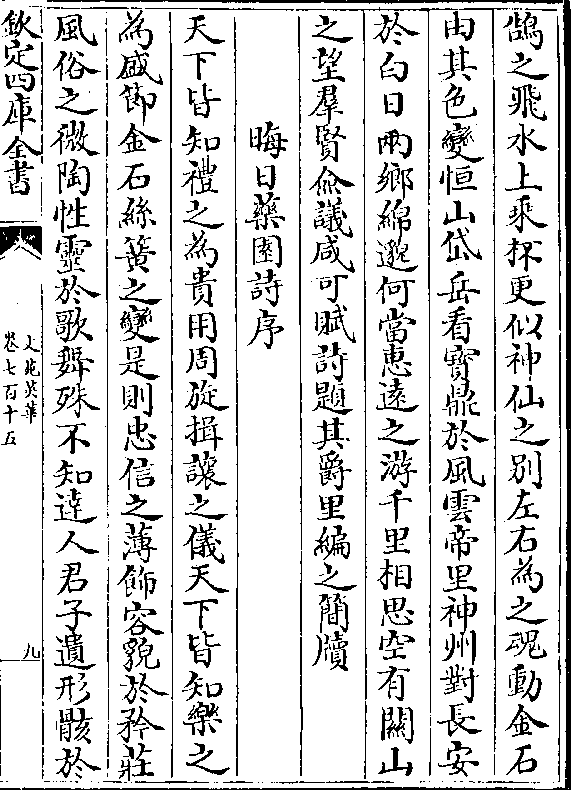 鵠之飛水上乘杯更似神仙之别左右為之魂動金石
由其色變恒山岱岳看寶鼎於風雲帝里神州對長安
於白日兩鄉綿邈何當惠遠之游千里相思空有關山
之望羣賢僉議咸可賦詩題其爵里編之簡牘
晦日藥園詩序
天下皆知禮之為貴用周旋揖讓之儀天下皆知樂之
為盛節金石絲簧之變是則忠信之薄飾容貌於矜莊
風俗之微陶性靈於歌舞殊不知達人君子遺形骸於
欽定四庫全書
文苑英華
卷七百十五
九